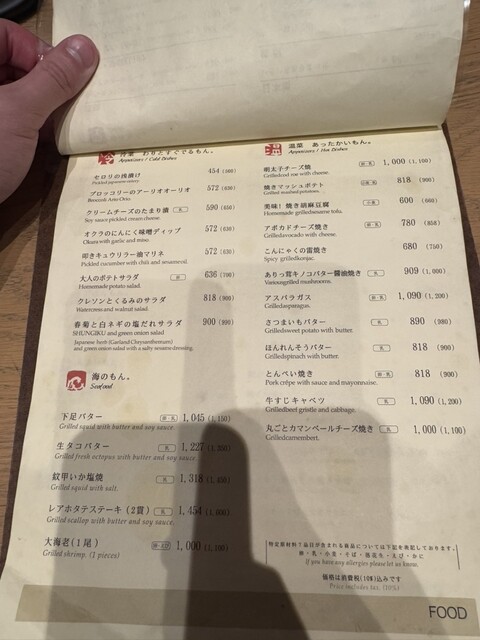 冷菜 わりとすぐでるもん。
Appetizers / Cold Dishes
セロリの浅漬け 454 (500)
Pickled japanese celery.
ブロッコリーのアーリオオーリオ 572 (630)
Broccoli Ario Orio
クリームチーズのたまり漬 乳 590 (650)
Soy sauce pickled cream cheese
オクラのにんにく味噌ディップ 572 (630)
Okura with garlic and miso.
叩きキュウリラー油マリネ 572 (630)
Pickled cucumber with chili and sesameoil.
大人のポテトサラダ 卵 636 (700)
Homemade potato salad.
クレソンとくるみのサラダ 818 (900)
Watercress and walnut salad.
春菊と白ネギの塩だれサラダ 900 (990)
SHUNGIKU and green onion salad
Japanese herb (Garland Chrysanthemum)
and green onion salad with a salty sesame dressing.
海のもん。
Seafood
下足バター 卵・乳 1,045 (1,150)
Grilled squid with butter and soy sauce.
生タコバター 乳 1,227 (1,350)
Grilled fresh octopus with butter and soy sauce
紋甲いか塩焼 乳 1,318 (1,450)
Grilled squid with salt.
レアホタテステーキ (2貫) 乳 1,454 (1,600)
Grilled scallop with butter and soy sauce.
大海老(1尾) 1,000 (1,100)
Grilled shrimp. (1 pieces)
温 温菜 あったかいもん。
Appetizers / Hot Dishes
明太子チーズ焼 卵・乳 1,000 (1,100)
Grilledcod roe with cheese.
焼きマッシュポテト 818 (900)
Grilled mashed potatoes.
美味! 焼き胡麻豆腐 600 (660)
Homemade grilledsesame tofu.
アボカドチーズ焼 卵・乳 780 (858)
Grilledavocado with cheese.
こんにゃくの雷焼き 680 (750)
Spicy grilledkonjac.
あり'''茸キノコバター醤油焼き 乳 909 (1,000)
Variousgrilled mushrooms.
アスパラガス 卵・乳 1,090 (1,200)
Grilledasparagus.
さつまいもバター 乳 890 (980)
Grilledsweet potato with butter.
ほんれんそうバター 乳 818 (900)
Grilledspinach with butter.
とんぺい焼き 卵・乳 818 (900)
Pork crêpe with sauce and mayonnaise.
牛すじキャベツ 乳 1,090 (1,200)
Grilledbeef gristle and cabbage.
丸ごとカマンベールチーズ焼き 乳 1,000 (1,100)
Grilledcamembert.
特定原材料7品目が含まれる商品については下記を表記しております。
卵・乳・小麦・そば・落花生・えび・かに
If you have any allergies please let us know.
価格は消費税(10%)込みです
Price includes tax. (10%)
FOOD